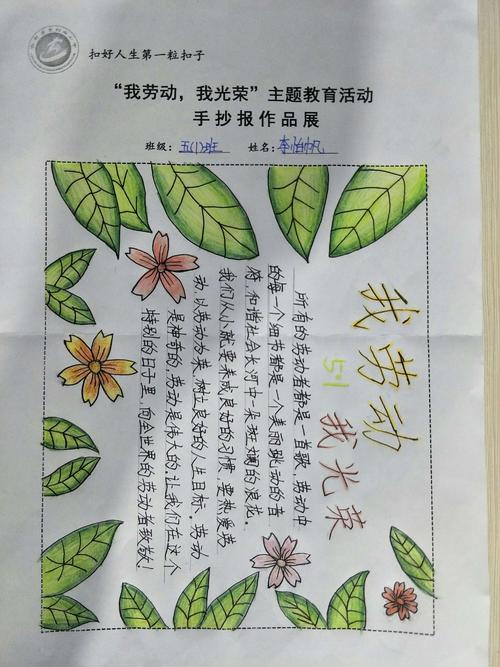 扣好人生第一粒扣子
“我劳动，我光荣”主题教育活动
手抄报作品展
班级：五(1)班 姓名：李怡帆
我劳动
5·1
我光荣
所有的劳动者都是一首歌，劳动中
的每一个细节都是一个美丽跳动的音
符，和谐社会长河中一朵斑斓的浪花。
我们从小就要养成良好的习惯，要热爱劳
动以劳动为荣，树立良好的人生目标。劳动
是神奇的，劳动是伟大的，让我们在这个
特别的日子里，向全世界的劳动者致敬！